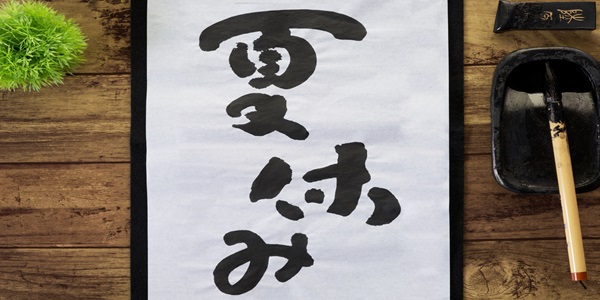 夏休み